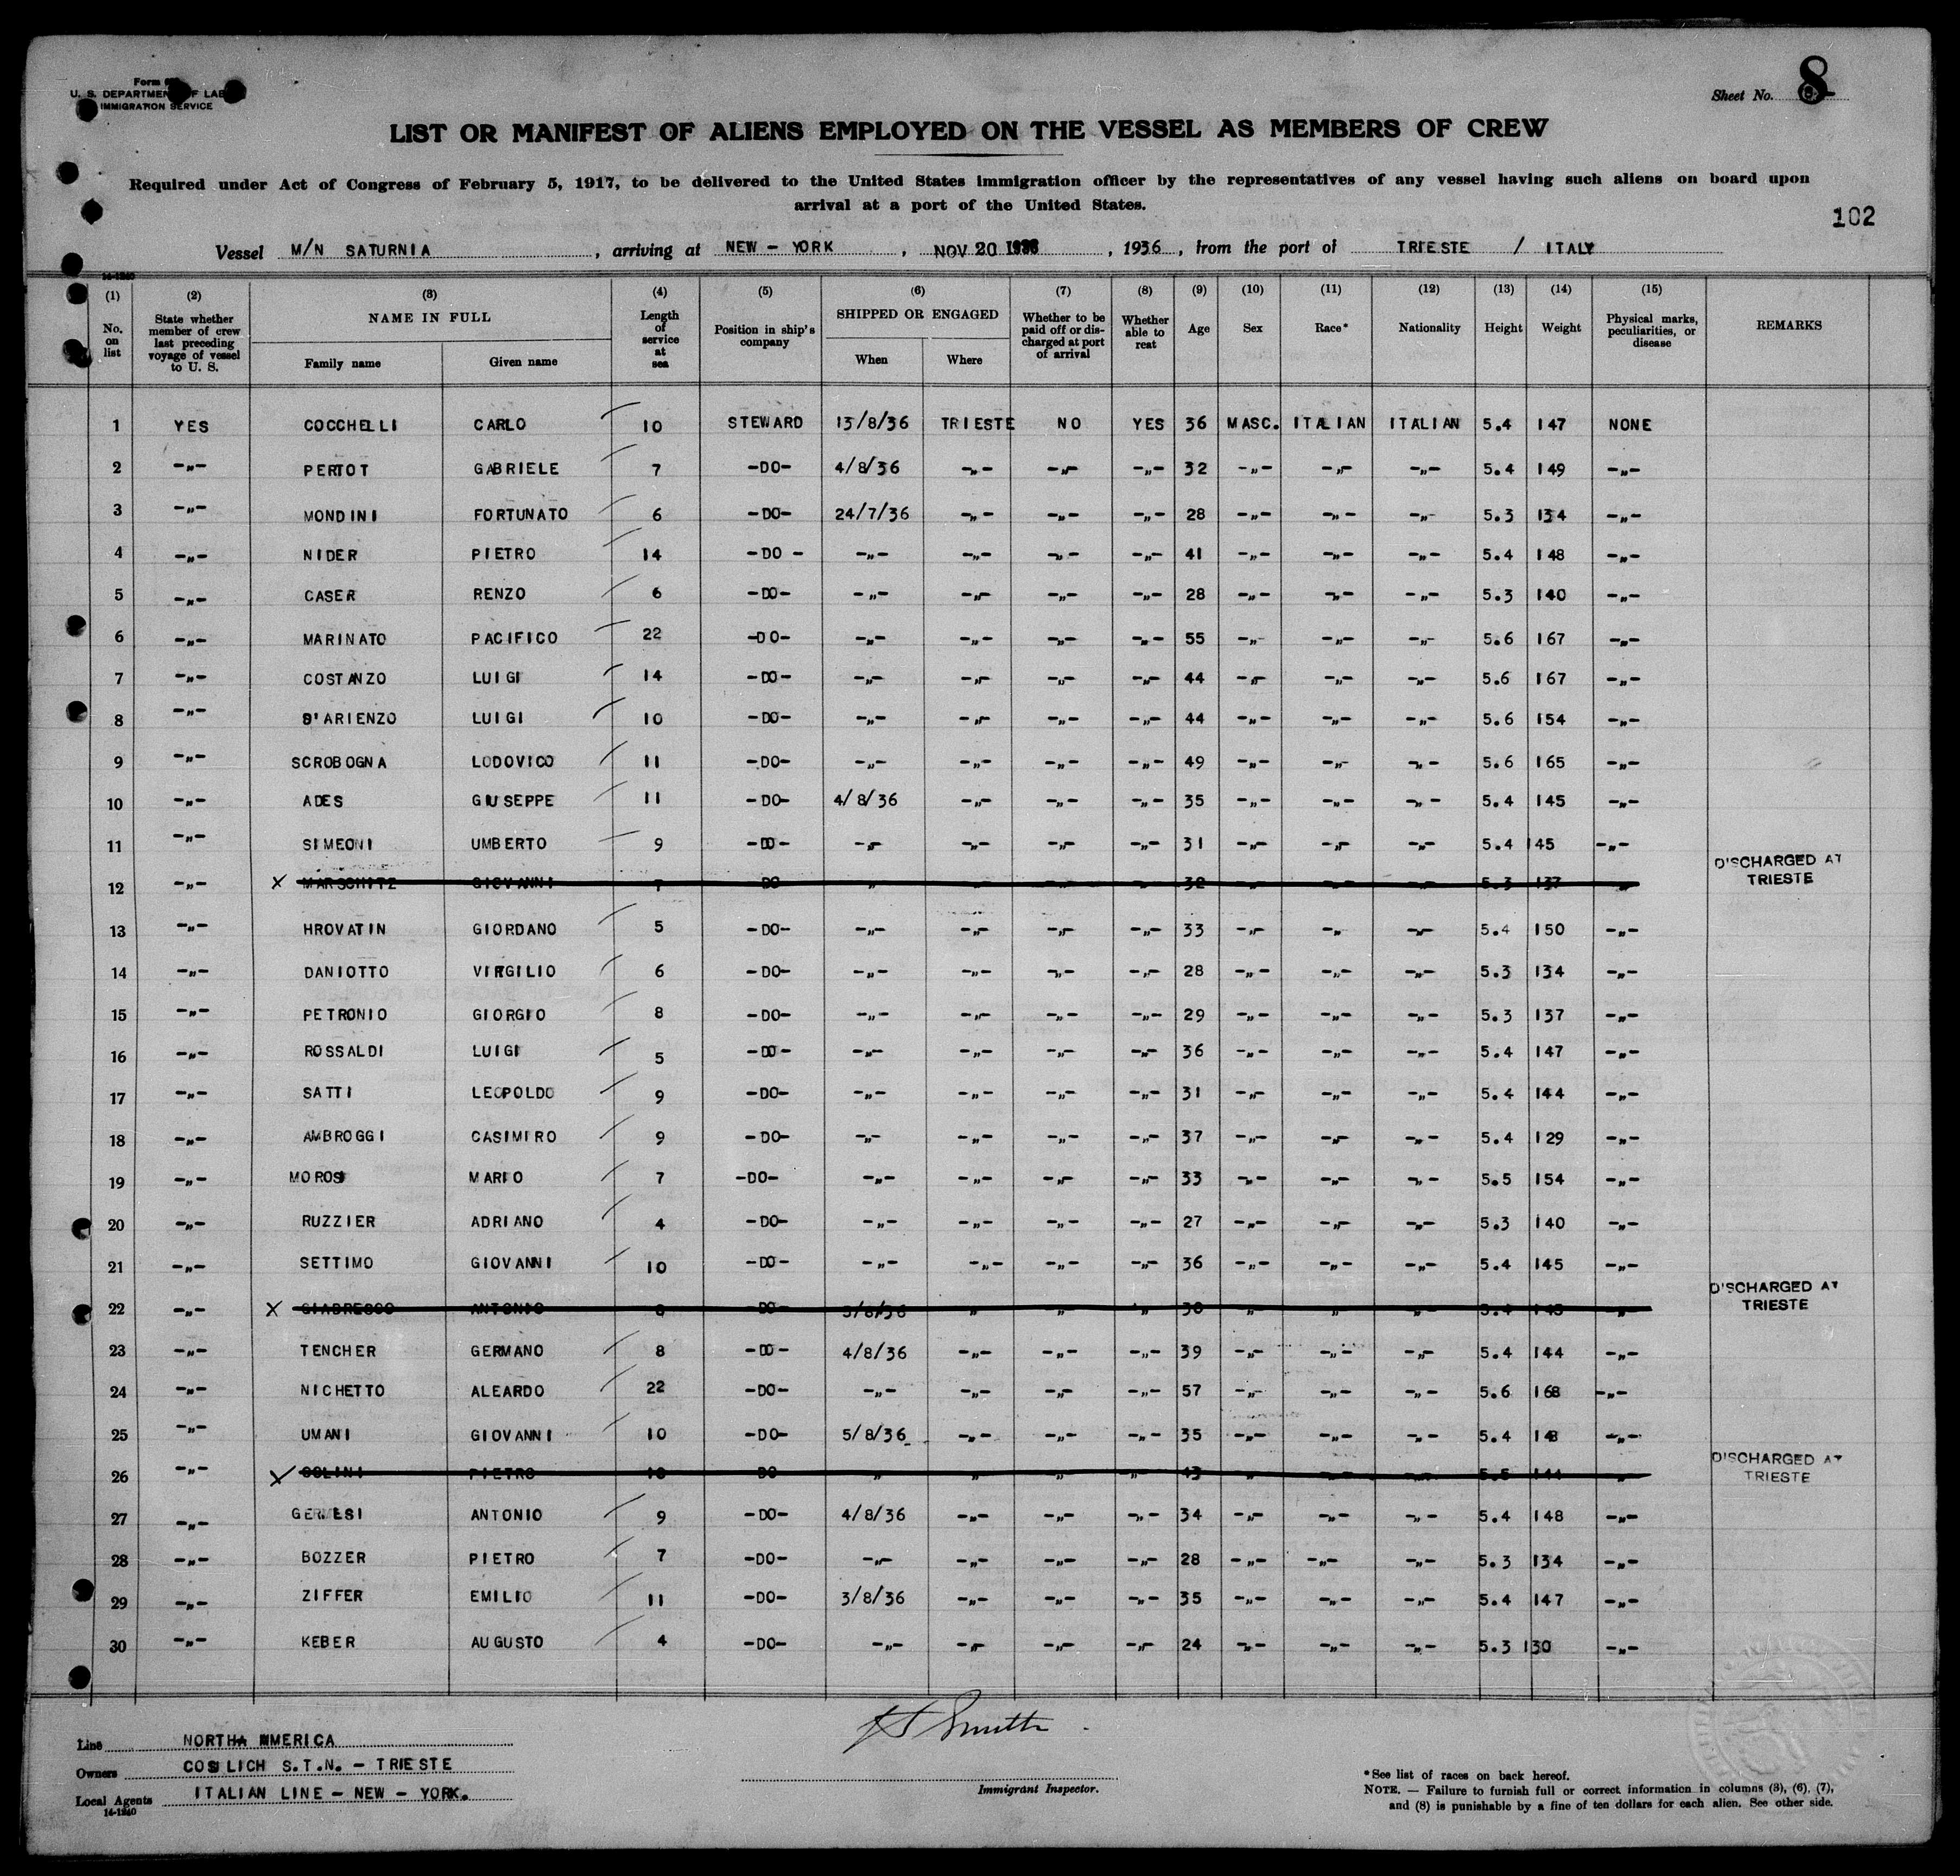 Form
U. S. DEPARTMENT OF LABOR
IMMIGRATION SERVICE
Sheet No. 8
LIST OR MANIFEST OF ALIENS EMPLOYED ON THE VESSEL AS MEMBERS OF CREW
Required under Act of Congress of February 5, 1917, to be delivered to the United States immigration officer by the representatives of any vessel having such aliens on board upon
arrival at a port of the United States.
102
Vessel M/N SATURNIA, arriving at NEW - YORK, NOV 20 1936, 1936, from the port of TRIESTE / ITALY
14-1240
(1) No. on list (2) State whether member of crew last preceding voyage of vessel to U. S. (3) NAME IN FULL Family name Given name (4) Length of service at sea (5) Position in ship's company (6) SHIPPED OR ENGAGED When Where (7) Whether to be paid off or discharged at port of arrival (8) Whether able to reat (9) Age (10) Sex (11) Race* (12) Nationality (13) Height (14) Weight (15) Physical marks, peculiarities, or disease REMARKS
1 YES COCCHELLI CARLO 10 STEWARD 13/8/36 TRIESTE NO YES 36 MASC. ITALIAN ITALIAN 5.4 147 NONE
2 -„- PERTOT GABRIELE 7 -DO- 4/8/36 -„- -„- -„- 32 -„- -„- -„- 5.4 149 -„-
3 -„- MONDINI FORTUNATO 6 -DO- 24/7/36 -„- -„- -„- 28 -„- -„- -„- 5.3 134 -„-
4 -„- NIDER PIETRO 14 -DO- -„- -„- -„- -„- 41 -„- -„- -„- 5.4 148 -„-
5 -„- CASER RENZO 6 -DO- -„- -„- -„- -„- 28 -„- -„- -„- 5.3 140 -„-
6 -„- MARINATO PACIFICO 22 -DO- -„- -„- -„- -„- 55 -„- -„- -„- 5.6 167 -„-
7 -„- COSTANZO LUIGI 14 -DO- -„- -„- -„- -„- 44 -„- -„- -„- 5.6 167 -„-
8 -„- D'ARIENZO LUIGI 10 -DO- -„- -„- -„- -„- 44 -„- -„- -„- 5.6 154 -„-
9 -„- SCROBOGNA LODOVICO 11 -DO- -„- -„- -„- -„- 49 -„- -„- -„- 5.6 165 -„-
10 -„- ADES GIUSEPPE 11 -DO- 4/8/36 -„- -„- -„- 35 -„- -„- -„- 5.4 145 -„-
11 -„- SIMEONI UMBERTO 9 -DO- -„- -„- -„- -„- 31 -„- -„- -„- 5.4 145 -„-
12 -„- X MARSCHITZ GIOVANNI 7 DO „ -„- -„- -„- 32 -„- -„- -„- 5.3 137 „ DISCHARGED AT TRIESTE
13 -„- HROVATIN GIORDANO 5 -DO- -„- -„- -„- -„- 33 -„- -„- -„- 5.4 150 -„-
14 -„- DANIOTTO VIRGILIO 6 -DO- -„- -„- -„- -„- 28 -„- -„- -„- 5.3 134 -„-
15 -„- PETRONIO GIORGIO 8 -DO- -„- -„- -„- -„- 29 -„- -„- -„- 5.3 137 -„-
16 -„- ROSSALDI LUIGI 5 -DO- -„- -„- -„- -„- 36 -„- -„- -„- 5.4 147 -„-
17 -„- SATTI LEOPOLDO 9 -DO- -„- -„- -„- -„- 31 -„- -„- -„- 5.4 144 -„-
18 -„- AMBROGGI CASIMIRO 9 -DO- -„- -„- -„- -„- 37 -„- -„- -„- 5.4 129 -„-
19 -„- MOROSI MARIO 7 -DO- -„- -„- -„- -„- 33 -„- -„- -„- 5.5 154 -„-
20 -„- RUZZIER ADRIANO 4 -DO- -„- -„- -„- -„- 27 -„- -„- -„- 5.3 140 -„-
21 -„- SETTIMO GIOVANNI 10 -DO- -„- -„- -„- -„- 36 -„- -„- -„- 5.4 145 -„-
22 -„- X ANTONIO DO 3/8/36 „ „ „ 30 „ „ „ 5.4 „ DISCHARGED AT TRIESTE
23 -„- TENCHER GERMANO 8 -DO- 4/8/36 -„- -„- -„- 39 -„- -„- -„- 5.4 144 -„-
24 -„- NICHETTO ALEARDO 22 -DO- -„- -„- -„- -„- 57 -„- -„- -„- 5.6 168 -„-
25 -„- UMANI GIOVANNI 10 -DO- 5/8/36 -„- -„- -„- 35 -„- -„- -„- 5.4 148 -„-
26 -„- X PIETRO DO „ „ „ „ 43 „ „ „ 5.5 144 „ DISCHARGED AT TRIESTE
27 -„- ANTONIO 9 -DO- 4/8/36 -„- -„- -„- 34 -„- -„- -„- 5.4 148 -„-
28 -„- BOZZER PIETRO 7 -DO- -„- -„- -„- -„- 28 -„- -„- -„- 5.3 134 -„-
29 -„- ZIFFER EMILIO 11 -DO- 3/8/36 -„- -„- -„- 35 -„- -„- -„- 5.4 147 -„-
30 -„- KEBER AUGUSTO 4 -DO- -„- -„- -„- -„- 24 -„- -„- -„- 5.3 130 -„-
Line NORTH AMERICA
Owners COSULICH S.T.N. - TRIESTE
Local Agents ITALIAN LINE - NEW - YORK.
14-1240
Smith
Immigrant Inspector.
*See list of races on back hereof.
NOTE. — Failure to furnish full or correct information in columns (3), (6), (7),
and (8) is punishable by a fine of ten dollars for each alien. See other side.